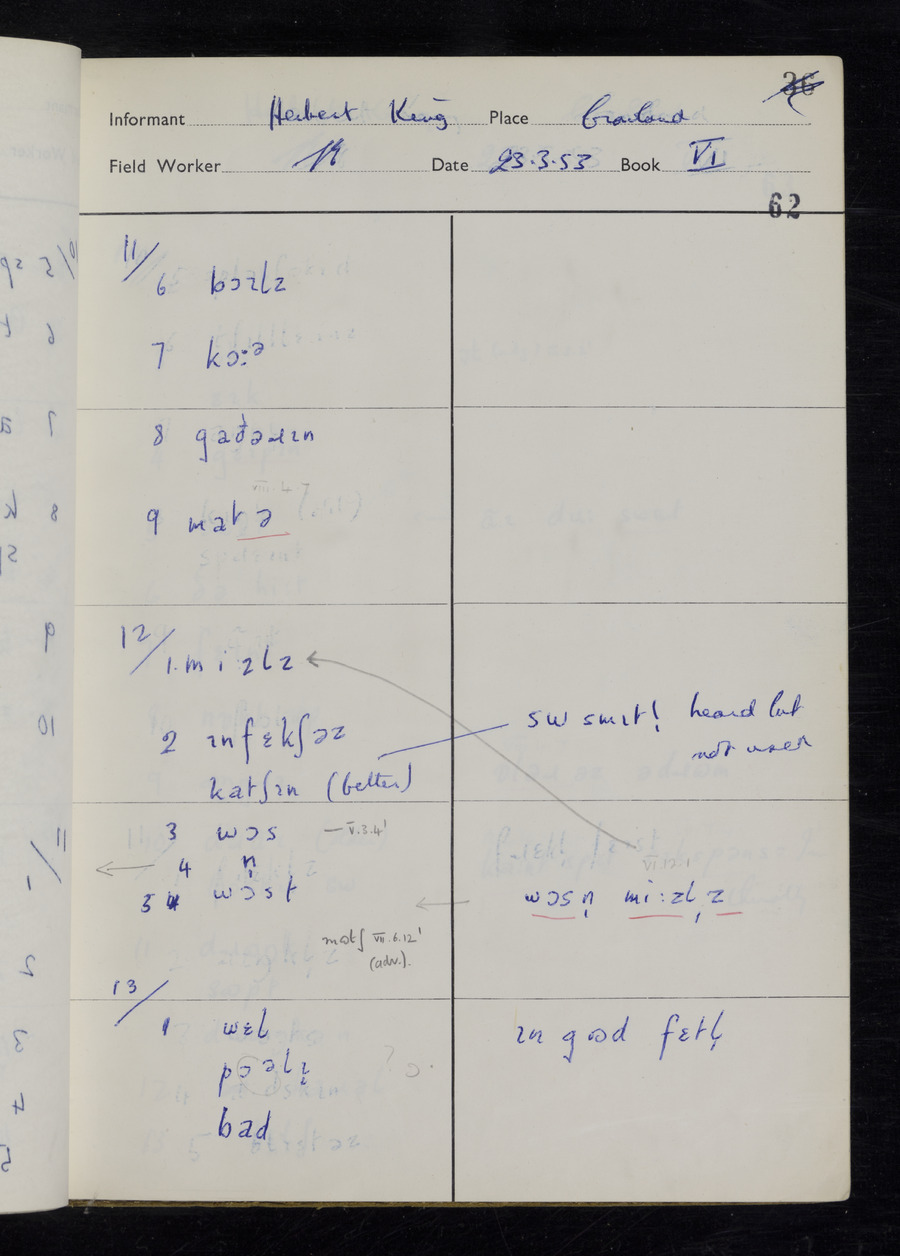 36
Informant Herbert King Place Crowland
Field Worker Date 23.3.53 Book VI
62
11/
6 bɔɪlz
7 kɔːᵊ
8 gaðəɹɪn
VIII.4.7
9 matə
12/
1. mizlz
2 ɪnfɛkʃəz
katʃɪn (better)
sw smɪt! heard but
not used
3 wɔs — V.3.4'
4 n̩
5 wɔst
VII.12.1
wɔsn̩ miːzl̩z
mətʃ VII.6.12'
(adv.).
13/
1 wɛl
pɔəlɪ
bad
ɪn gɔd fɛtl̩